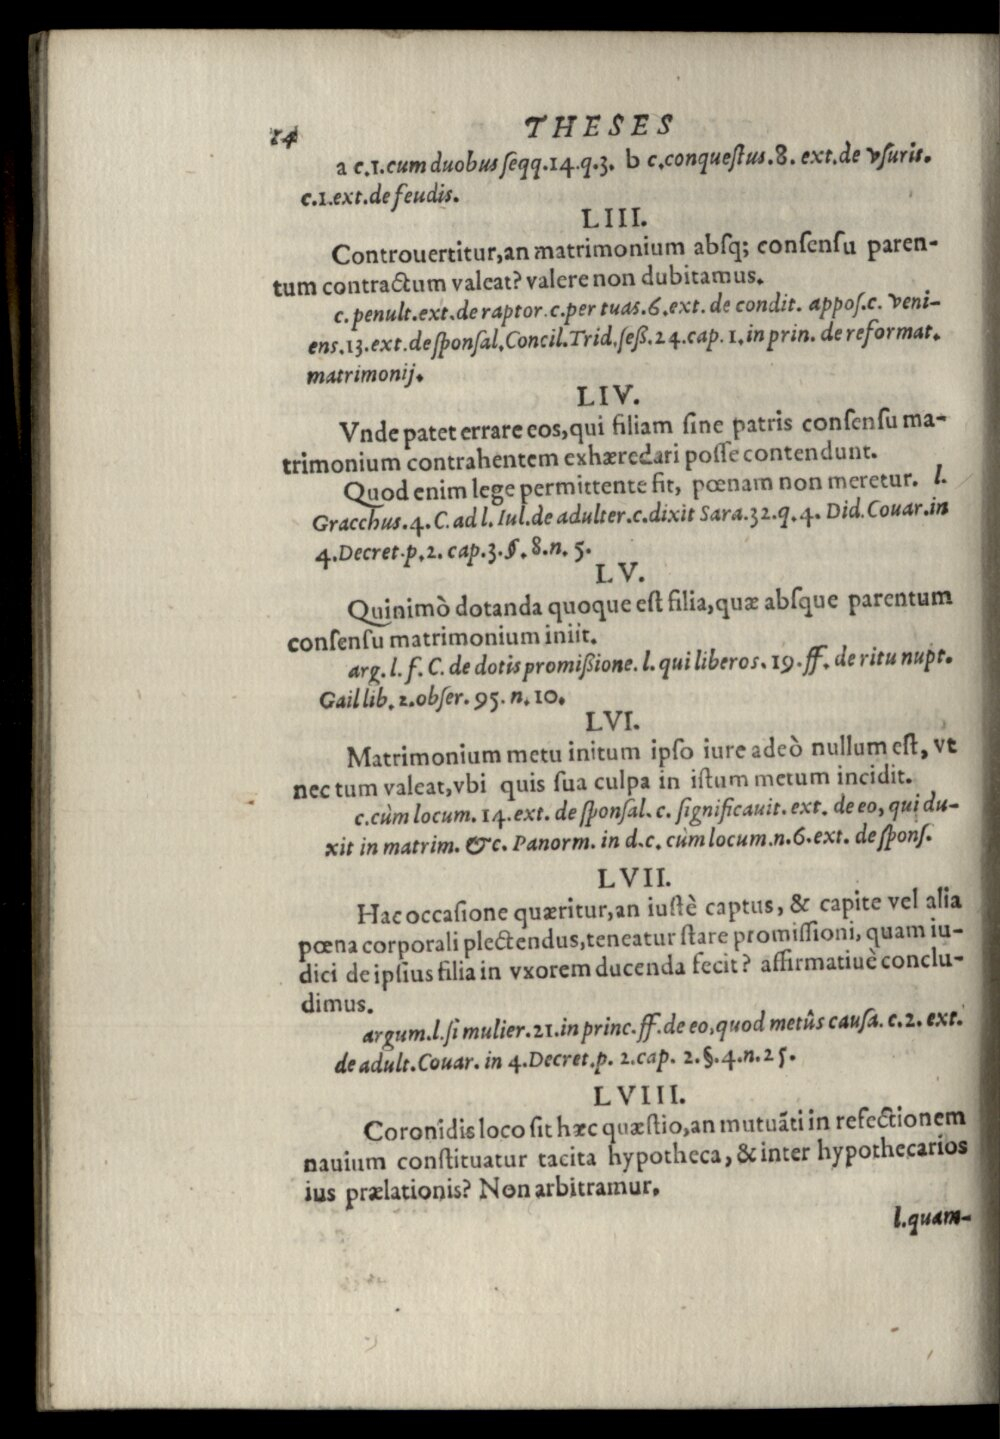 14 THESES
a c.1.cum duobus ſeqq.14.q.3. b c.conqueſtus.8. ext.de vſuris.
c.1.ext.de feudis.
LIII.
Controuertitur,an matrimonium abſq; conſenſu paren-
tum contractum valeat? valere non dubitamus.
c.penult.ext.de raptor.c.per tuas.6.ext. de condit. appoſ.c. veni-
ens.13.ext.de ſponſal.Concil.Trid.ſeß.24.cap. 1.in prin. de reformat.
matrimonij.
LIV.
Vnde patet errare eos,qui filiam ſine patris conſenſu ma-
trimonium contrahentem exhæredari poſſe contendunt.
Quod enim lege permittente fit, pœnam non meretur. l.
Gracchus.4.C.ad l. Iul.de adulter.c.dixit Sara.32.q.4. Did.Couar.in
4.Decret.p.2. cap.3.§.8.n. 5.
LV.
Quinimò dotanda quoque eſt filia,quæ abſque parentum
conſenſu matrimonium iniit.
arg.l.f. C. de dotis promißione. l. qui liberos.19.ff. de ritu nupt.
Gail lib.2.obſer. 95. n.10.
LVI.
Matrimonium metu initum ipſo iure adeò nullum eſt, vt
nec tum valeat,vbi quis ſua culpa in iſtum metum incidit.
c.cùm locum. 14.ext. de ſponſal. c. ſignificauit. ext. de eo, qui du-
xit in matrim. &c. Panorm. in d.c. cùm locum.n.6.ext. de ſponſ.
LVII.
Hac occaſione quæritur,an iuſtè captus, & capite vel alia
pœna corporali plectendus,teneatur ſtare promiſſioni, quam iu-
dici de ipſius filia in vxorem ducenda fecit? affirmatiuè conclu-
dimus.
argum.l.ſi mulier.21.in princ.ff.de eo,quod metûs cauſa. c.2. ext.
de adult.Couar. in 4.Decret.p. 2.cap. 2.§.4.n.25.
LVIII.
Coronidis loco ſit hæc quæſtio,an mutuãti in refectionem
nauium conſtituatur tacita hypotheca, & inter hypothecarios
ius prælationis? Non arbitramur.
l.quam-